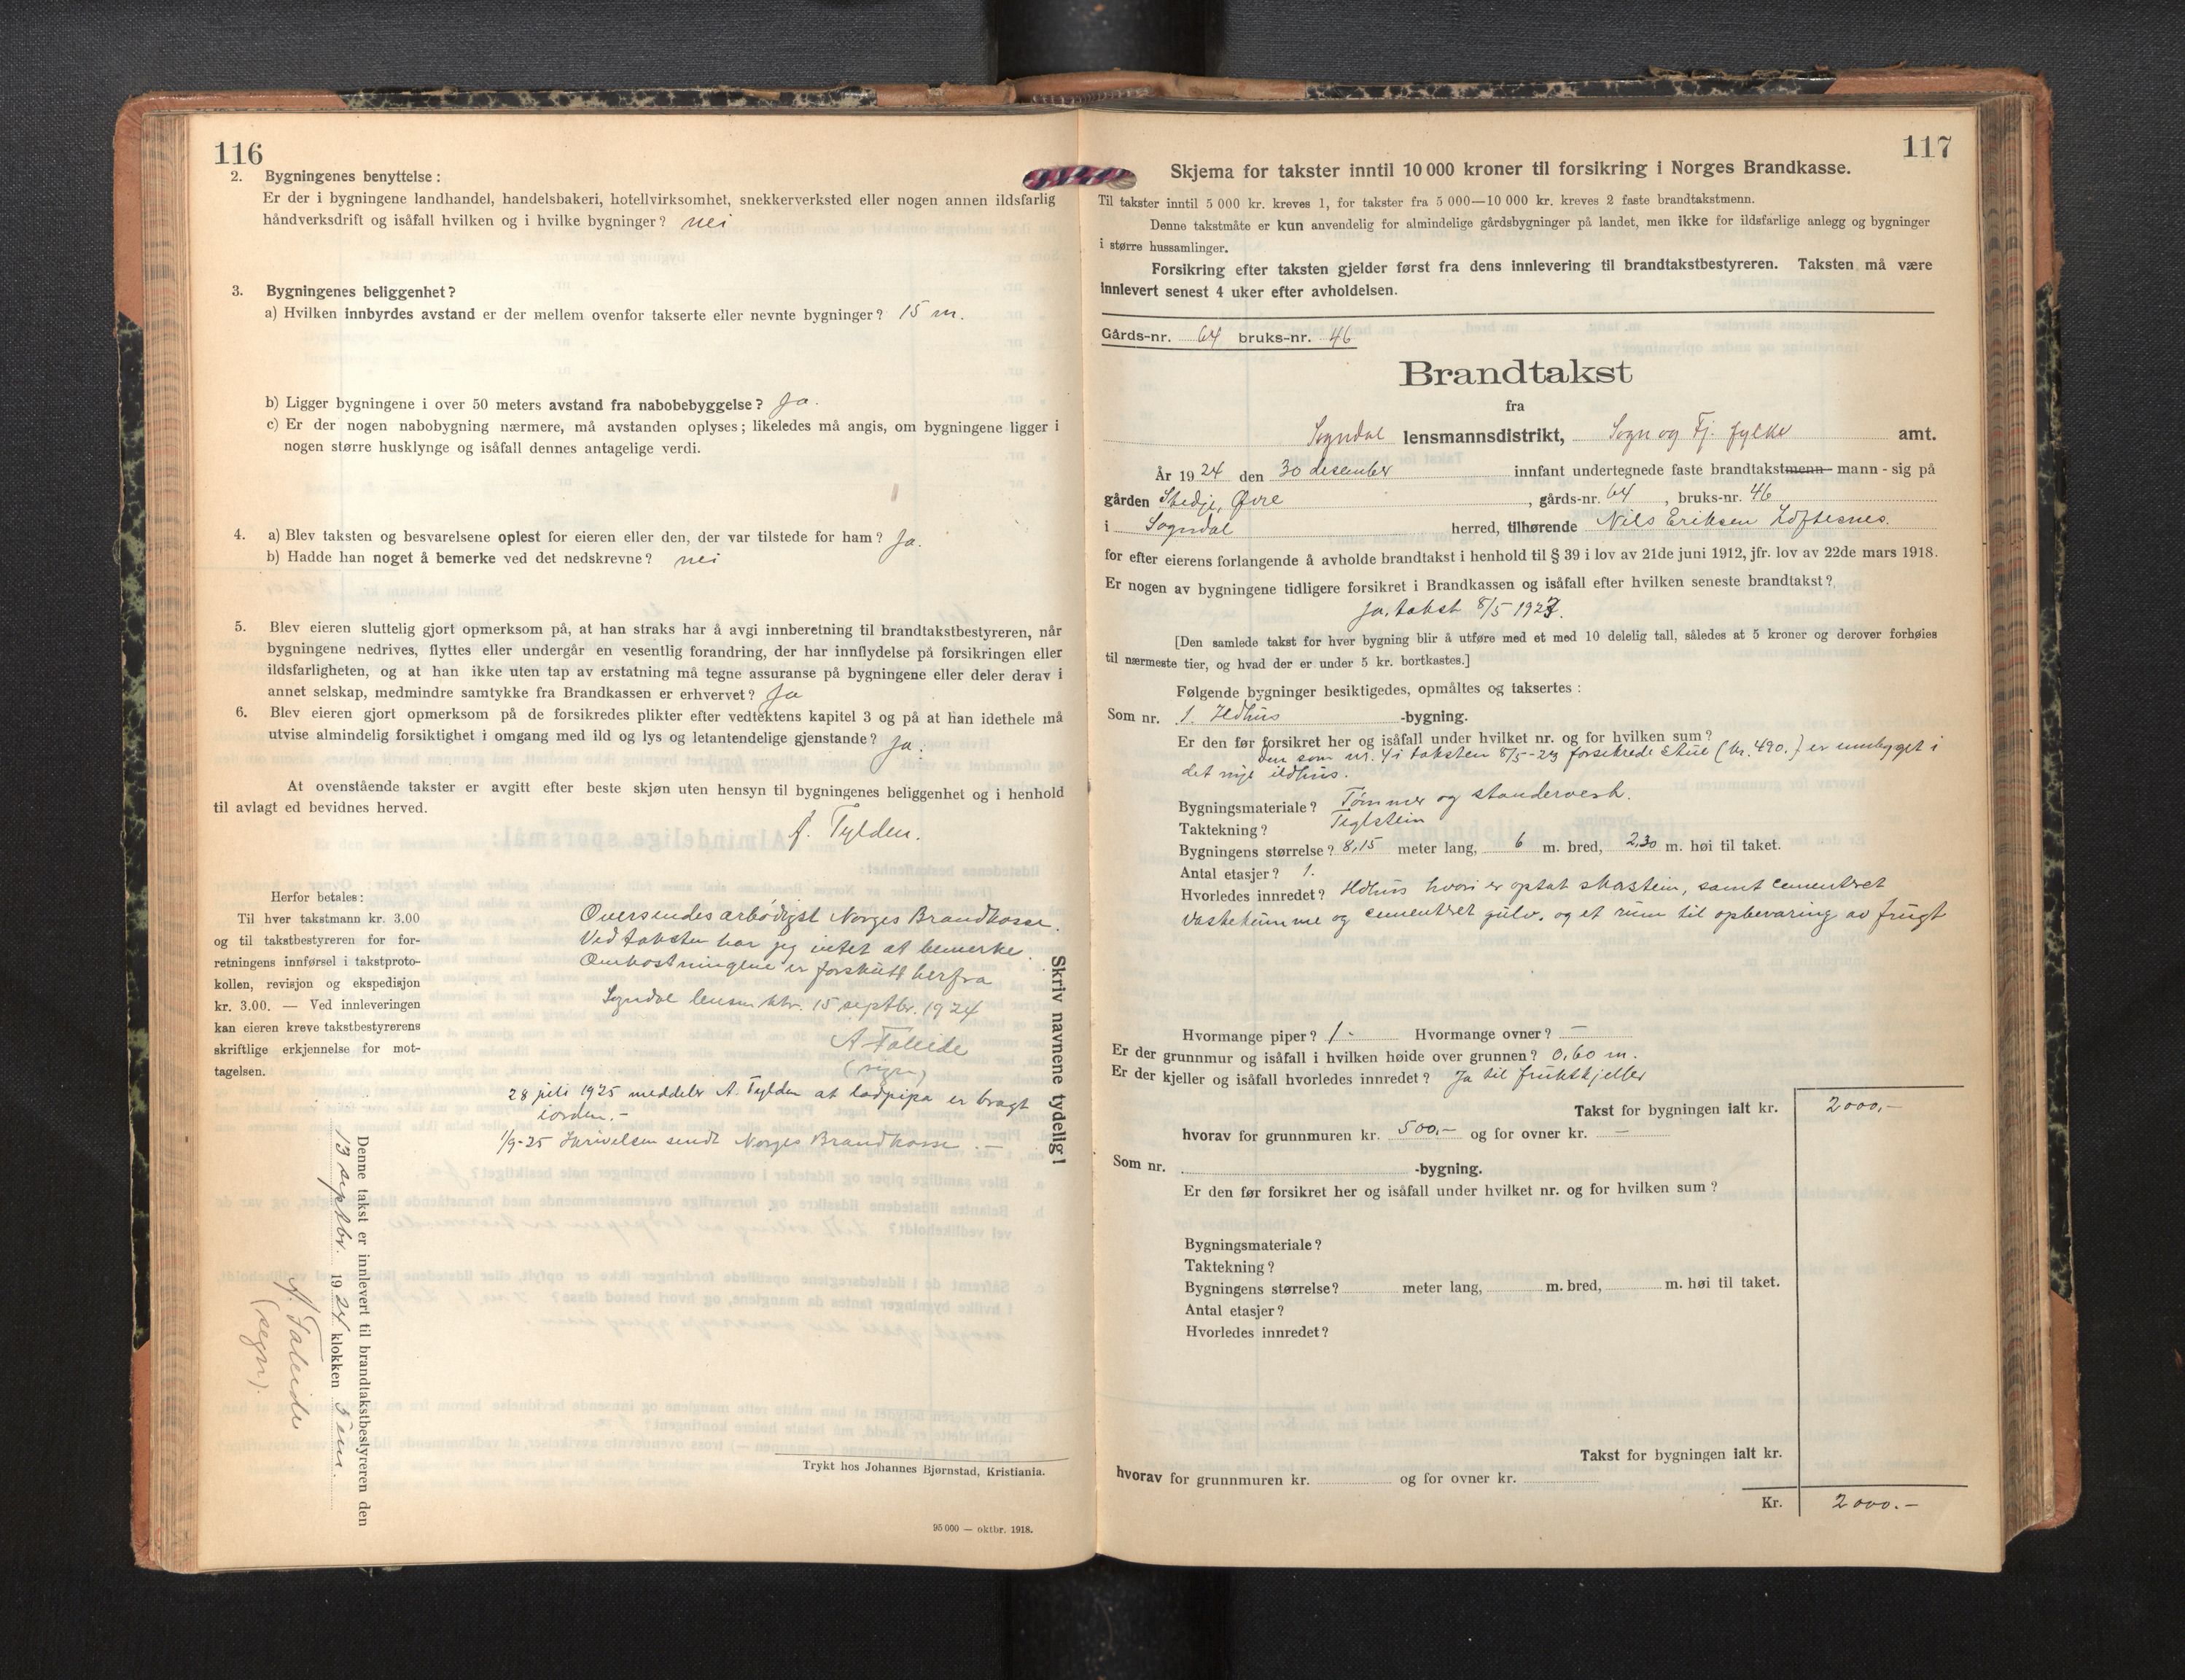 116
2. Bygningenes benyttelse:
Er der i bygningene landhandel, handelsbakeri, hotellvirksomhet, snekkerverksted eller nogen annen ildsfarlig
håndverksdrift og isåfall hvilken og i hvilke bygninger? nei
3. Bygningenes beliggenhet?
a) Hvilken innbyrdes avstand er der mellem ovenfor takserte eller nevnte bygninger? 15 m.
b) Ligger bygningene i over 50 meters avstand fra nabobebyggelse? Ja.
c) Er der nogen nabobygning nærmere, må avstanden oplyses; likeledes må angis, om bygningene ligger i
nogen større husklynge og isåfall dennes antagelige verdi.
4. a) Blev taksten og besvarelsene oplest for eieren eller den, der var tilstede for ham? Ja.
b) Hadde han noget å bemerke ved det nedskrevne? nei
5. Blev eieren sluttelig gjort opmerksom på, at han straks har å avgi innberetning til brandtakstbestyreren, når
bygningene nedrives, flyttes eller undergår en vesentlig forandring, der har innflydelse på forsikringen eller
ildsfarligheten, og at han ikke uten tap av erstatning må tegne assuranse på bygningene eller deler derav i
annet selskap, medmindre samtykke fra Brandkassen er erhvervet? Ja
6. Blev eieren gjort opmerksom på de forsikredes plikter efter vedtektens kapitel 3 og på at han idethele må
utvise almindelig forsiktighet i omgang med ild og lys og letantendelige gjenstande? Ja.
At ovenstående takster er avgitt efter beste skjøn uten hensyn til bygningenes beliggenhet og i henhold
til avlagt ed bevidnes herved.
A. Tylden.
Herfor betales:
Til hver takstmann kr. 3.00
og til takstbestyreren for for-
retningens innførsel i takstproto-
kollen, revisjon og ekspedisjon
kr. 3.00. — Ved innleveringen
kan eieren kreve takstbestyrerens
skriftlige erkjennelse for mot-
tagelsen.
Oversendes ærbødigst Norges Brandkasse.
Ved taksten har jeg intet at bemerke.
Omkostningene er forskutt herfra
Sogndal lensm.ktr. 15 septbr. 1924
A Faleide
(sign)
28 juli 1925 meddeler A. Tylden at ladpipa er bragt
iorden.-
1/9-25 Skrivelsen sendt Norges Brandkasse.—
Skriv navnene tydelig!
Denne takst er innlevert til brandtakstbestyreren den
13 septbr. 1924 klokken 5 em.
A Faleide
(segn).
Trykt hos Johannes Bjørnstad, Kristiania.
95 000 — oktbr. 1918.
117
Skjema for takster inntil 10 000 kroner til forsikring i Norges Brandkasse.
Til takster inntil 5 000 kr. kreves 1, for takster fra 5 000—10 000 kr. kreves 2 faste brandtakstmenn.
Denne takstmåte er kun anvendelig for almindelige gårdsbygninger på landet, men ikke for ildsfarlige anlegg og bygninger
i større hussamlinger.
Forsikring efter taksten gjelder først fra dens innlevering til brandtakstbestyreren. Taksten må være
innlevert senest 4 uker efter avholdelsen.
Gårds-nr. 64 bruks-nr. 46
Brandtakst
fra
Sogndal lensmannsdistrikt, Sogn og Fj. fylke amt.
År 1924 den 30 desember innfant undertegnede faste brandtakstmenn- mann - sig på
gården Stedje, Øvre, gårds-nr. 64, bruks-nr. 46
i Sogndal herred, tilhørende Nils Eriksen Loftesnes.
for efter eierens forlangende å avholde brandtakst i henhold til § 39 i lov av 21de juni 1912, jfr. lov av 22de mars 1918.
Er nogen av bygningene tidligere forsikret i Brandkassen og isåfall efter hvilken seneste brandtakst?
Ja, takst 8/5 1923.
[Den samlede takst for hver bygning blir å utføre med et med 10 delelig tall, således at 5 kroner og derover forhøies
til nærmeste tier, og hvad der er under 5 kr. bortkastes.]
Følgende bygninger besiktigedes, opmåltes og taksertes:
Som nr. 1. Ildhus -bygning.
Er den før forsikret her og isåfall under hvilket nr. og for hvilken sum?
Den som nr. 4 i taksten 8/5-23 forsikrede Stue (kr. 490.) er innbygget i
det nye ildhus.
Bygningsmateriale? Tømmer og standerverk.
Taktekning? Teglstein
Bygningens størrelse? 8,15 meter lang, 6 m. bred, 2,30 m. høi til taket.
Antal etasjer? 1.
Hvorledes innredet? Ildhus hvori er optat skorstein, samt cementeret
vaskekumme og cementeret gulv. og et rum til opbevaring av frugt
Hvormange piper? 1 - Hvormange ovner? —
Er der grunnmur og isåfall i hvilken høide over grunnen? 0,60 m.
Er der kjeller og isåfall hvorledes innredet? Ja til fruktkjeller
Takst for bygningen ialt kr. 2000,—
hvorav for grunnmuren kr. 500,— og for ovner kr. —
Som nr. -bygning.
Er den før forsikret her og isåfall under hvilket nr. og for hvilken sum?
Bygningsmateriale?
Taktekning?
Bygningens størrelse? meter lang, m. bred, m. høi til taket.
Antal etasjer?
Hvorledes innredet?
Takst for bygningen ialt kr.
hvorav for grunnmuren kr. og for ovner kr.
Kr. 2000.—